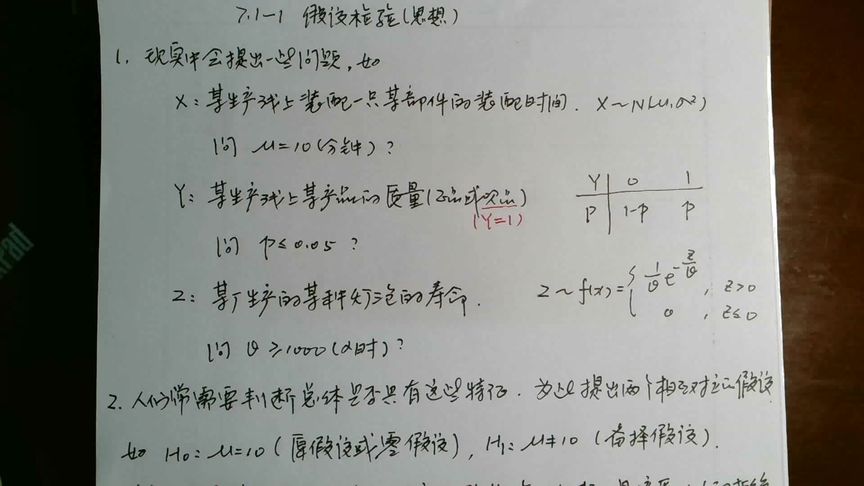 7.1-1 假设检验(思想)
1. 现实中会提出一些问题,如
X: 某生产线上装配一只某部件的装配时间. X~N(μ,σ²)
问 μ=10(分钟)?
Y: 某生产线上某产品的质量(正品或次品) Y 0 1
(Y=1) P 1-p p
问 p≤0.05 ?
Z: 某厂生产的某种灯泡的寿命. Z~f(x)={ 1/θ e^(-z/θ), z>0
0, z≤0
问 θ≥1000(小时)?
2. 人们常需要判断总体是否具有这些特征. 为此提出两个相互对立的假设
如 H₀: μ=10 (原假设或零假设), H₁: μ≠10 (备择假设).